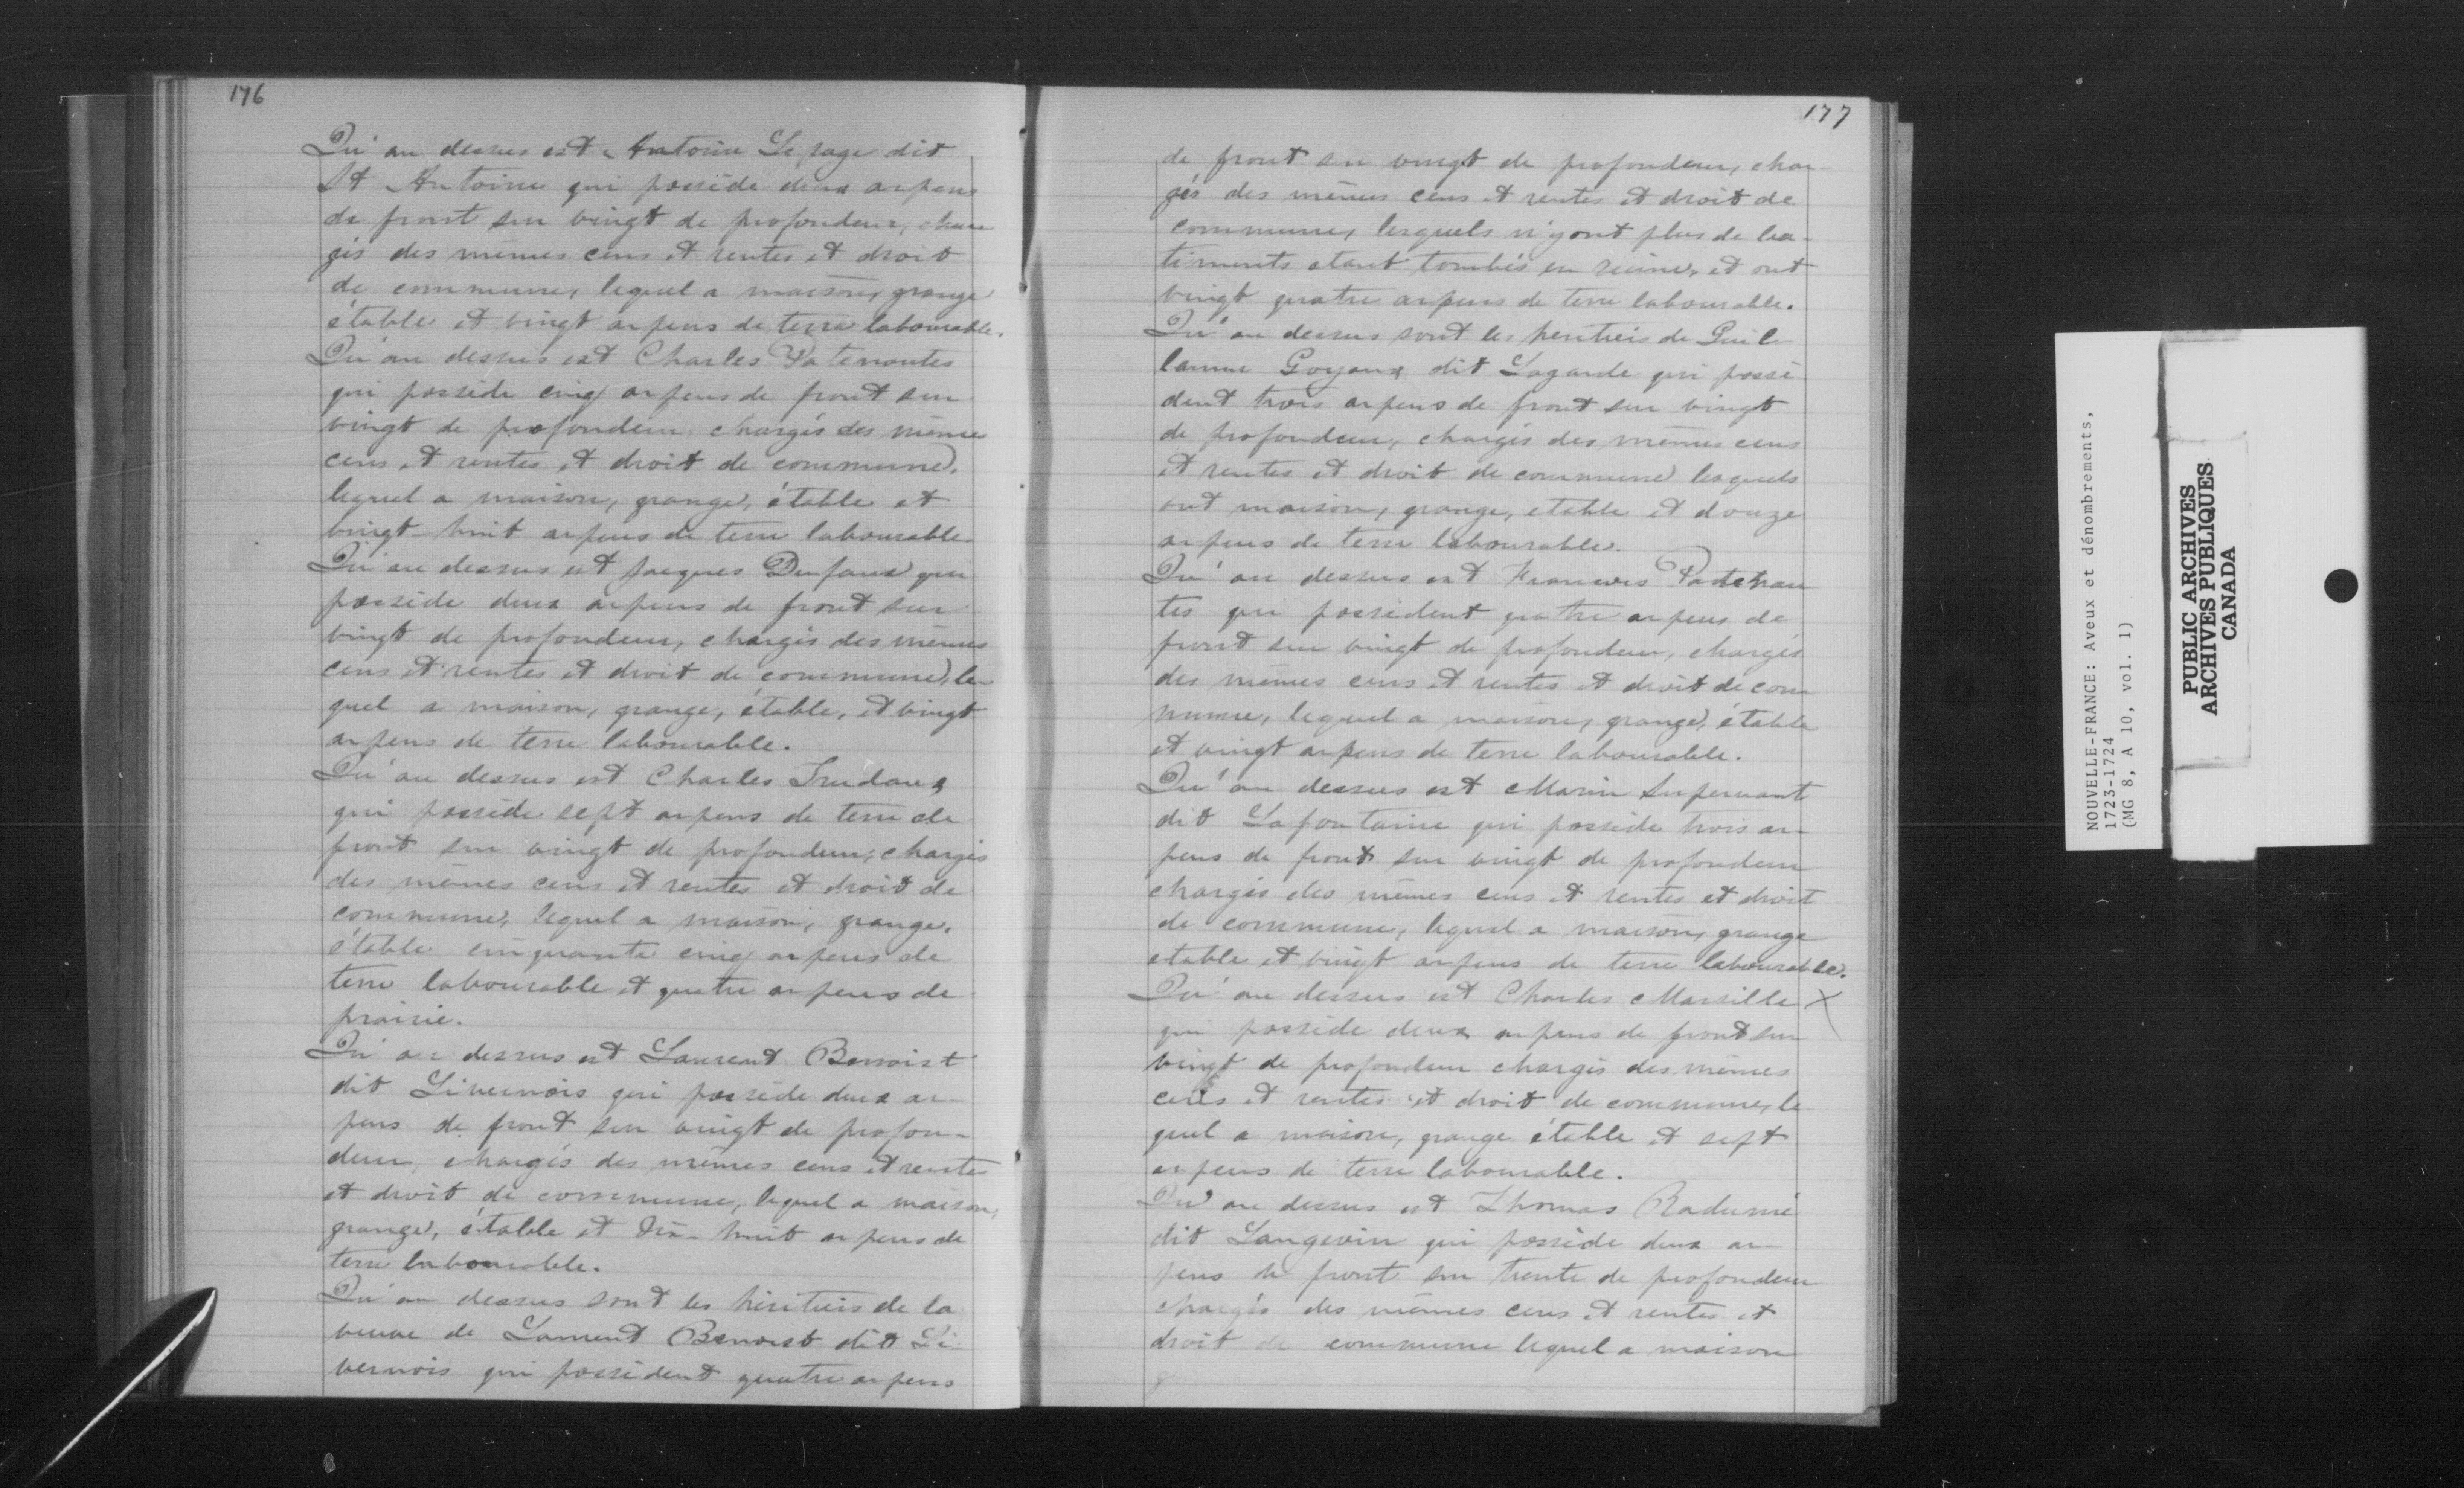 176
Qu'au dessus est Antoine Le page dit
St Antoine qui possède deux arpens
de front sur vingt de profondeur, char
gés des mêmes cens et rentes et droit
de commune, lequel a maison, grange
étable et vingt arpens de terre labourable.
Qu'au dessus est Charles Patenoutes
qui possède cinq arpens de front sur
vingt de profondeur chargés des mêmes
cens et rentes et droit de commune,
lequel a maison, grange, étable et
vingt-huit arpens de terre labourable
Qu'au dessus est Jacques Dufaux qui
possède deux arpens de front sur
vingt de profondeur, chargés des mêmes
cens et rentes et droit de commune, le
quel a maison, grange, étable, et vingt
arpens de terre labourable.
Qu'au dessus est Charles Trudaux
qui possède sept arpens de terre de
front sur vingt de profondeur, chargés
des mêmes cens et rentes et droit de
commune, lequel a maison, grange,
étable cinquante cinq arpens de
terre labourable et quatre arpens de
prairie.
Qu'au dessus est Laurent Benoist
dit Livernois qui possède deux ar
pens de front sur vingt de profon-
deur, chargés des mêmes cens et rentes
et droit de commune, lequel a maison,
grange, étable et dix-huit arpens de
terre labourable.
Qu'au dessus sont les héritiers de la
veuve de Laurent Benoist dit Li
vernois qui possèdent quatre arpens
177
de front sur vingt de profondeur, char
gés des mêmes cens et rentes et droit de
commune, lesquels n'y ont plus de ba-
timents etant tombés en ruine, et ont
vingt quatre arpens de terre labourable.
Qu'au dessus sont les heritiers de Guil
laume Goyaux dit Lagarde qui possè
dent trois arpens de front sur vingt
de profondeur, chargés des mêmes cens
et rentes et droit de commune lesquels
ont maison, grange, etable et douze
arpens de terre labourable.
Qu'au dessus est Francois Patenau
tes qui possèdent quatre arpens de
front sur vingt de profondeur, chargés
des mêmes cens et rentes et droit de com
mune, lequel a maison, grange, étable
et vingt arpens de terre labourable.
Qu'au dessus est Marin Surpernant
dit Lafontaine qui possède trois ar-
pens de front sur vingt de profondeur
chargés des mêmes cens et rentes et droit
de commune, lequel a maison, grange
etable et vingt arpens de terre labourable.
Qu'au dessus est Charles Marsille X
qui possède deux arpens de front sur
vingt de profondeur chargés des mêmes
cens et rentes et droit de commune, le
quel a maison, grange étable et sept
arpens de terre labourable.
Qu'au dessus est Thomas Radumé
dit Langevin qui possède deux ar
pens de front sur trente de profondeur
chargés des mêmes cens et rentes et
droit de commune lequel a maison
NOUVELLE-FRANCE: Aveux et dénombrements,
1723-1724
(MG 8, A 10, vol. 1)
PUBLIC ARCHIVES
ARCHIVES PUBLIQUES
CANADA